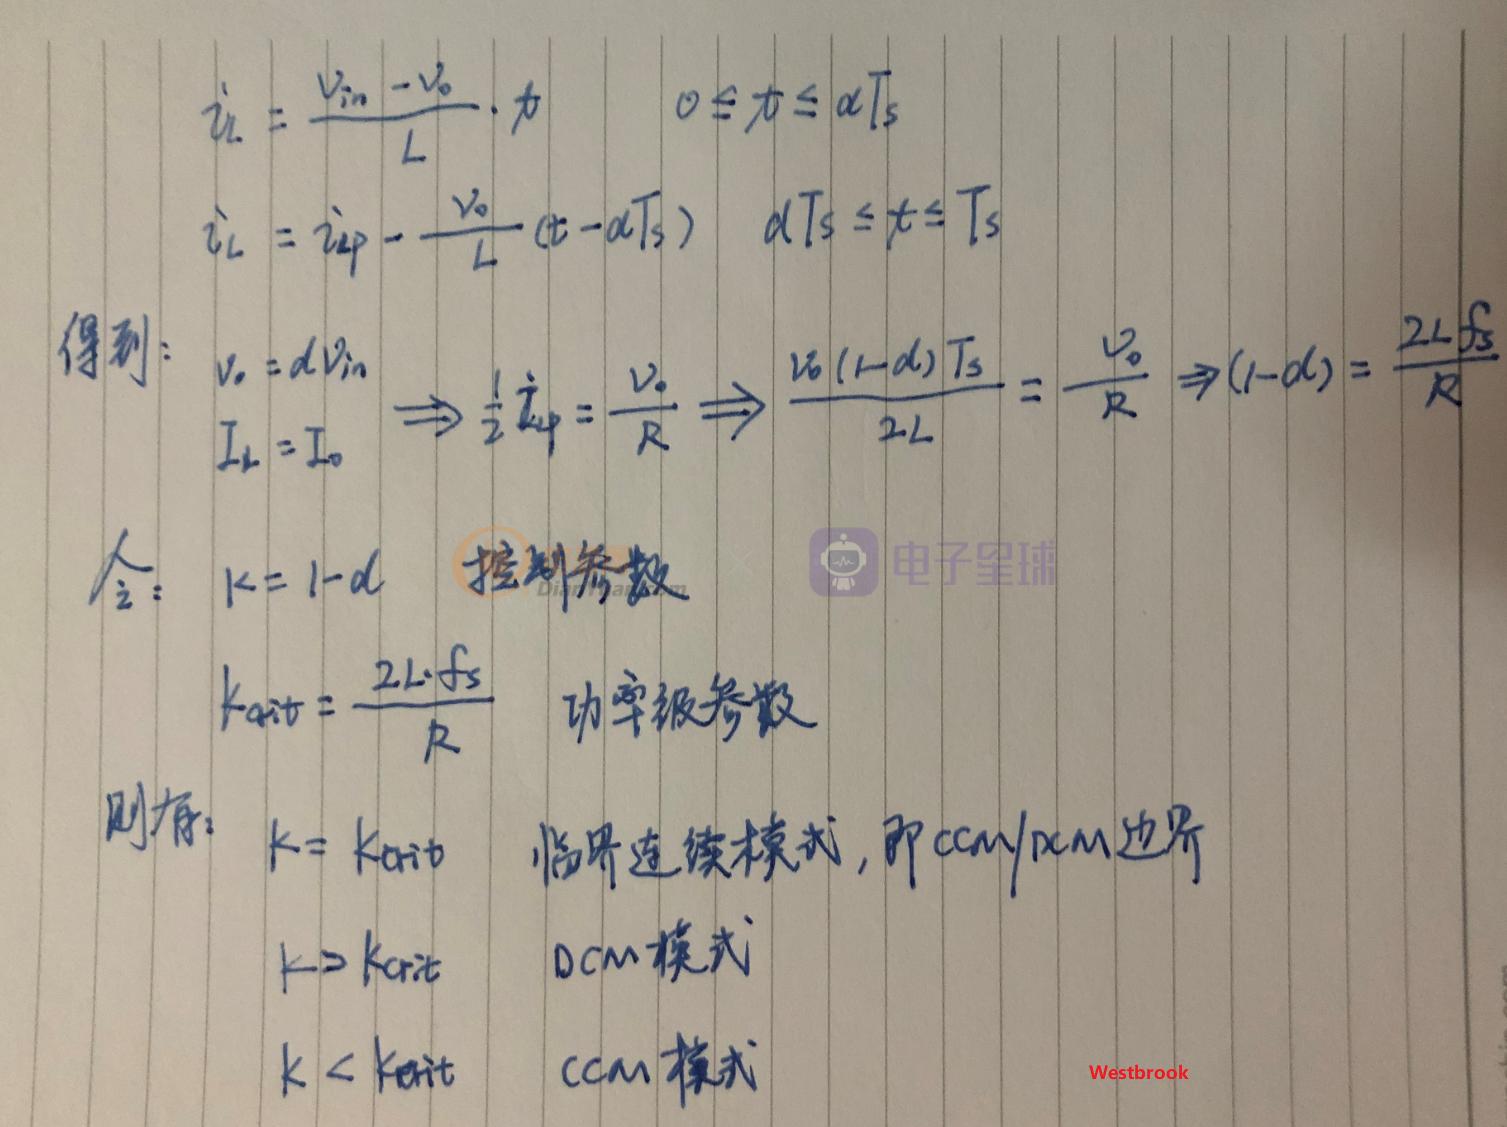 i_L = (V_in - V_o)/L · t    0 ≤ t ≤ dT_s
i_L = i_Lp - V_o/L (t - dT_s)    dT_s ≤ t ≤ T_s
得到: V_o = dV_in
I_L = I_o ⟹ 1/2 i_Lp = V_o/R ⟹ V_o(1-d)T_s/2L = V_o/R ⟹ (1-d) = 2Lf_s/R
令: K = 1-d 控制参数
DianYuan.com × 电子星球
K_crit = 2L·f_s/R 功率级参数
则有: K = K_crit 临界连续模式, 即CCM/DCM边界
K > K_crit DCM模式
K < K_crit CCM模式
Westbrook